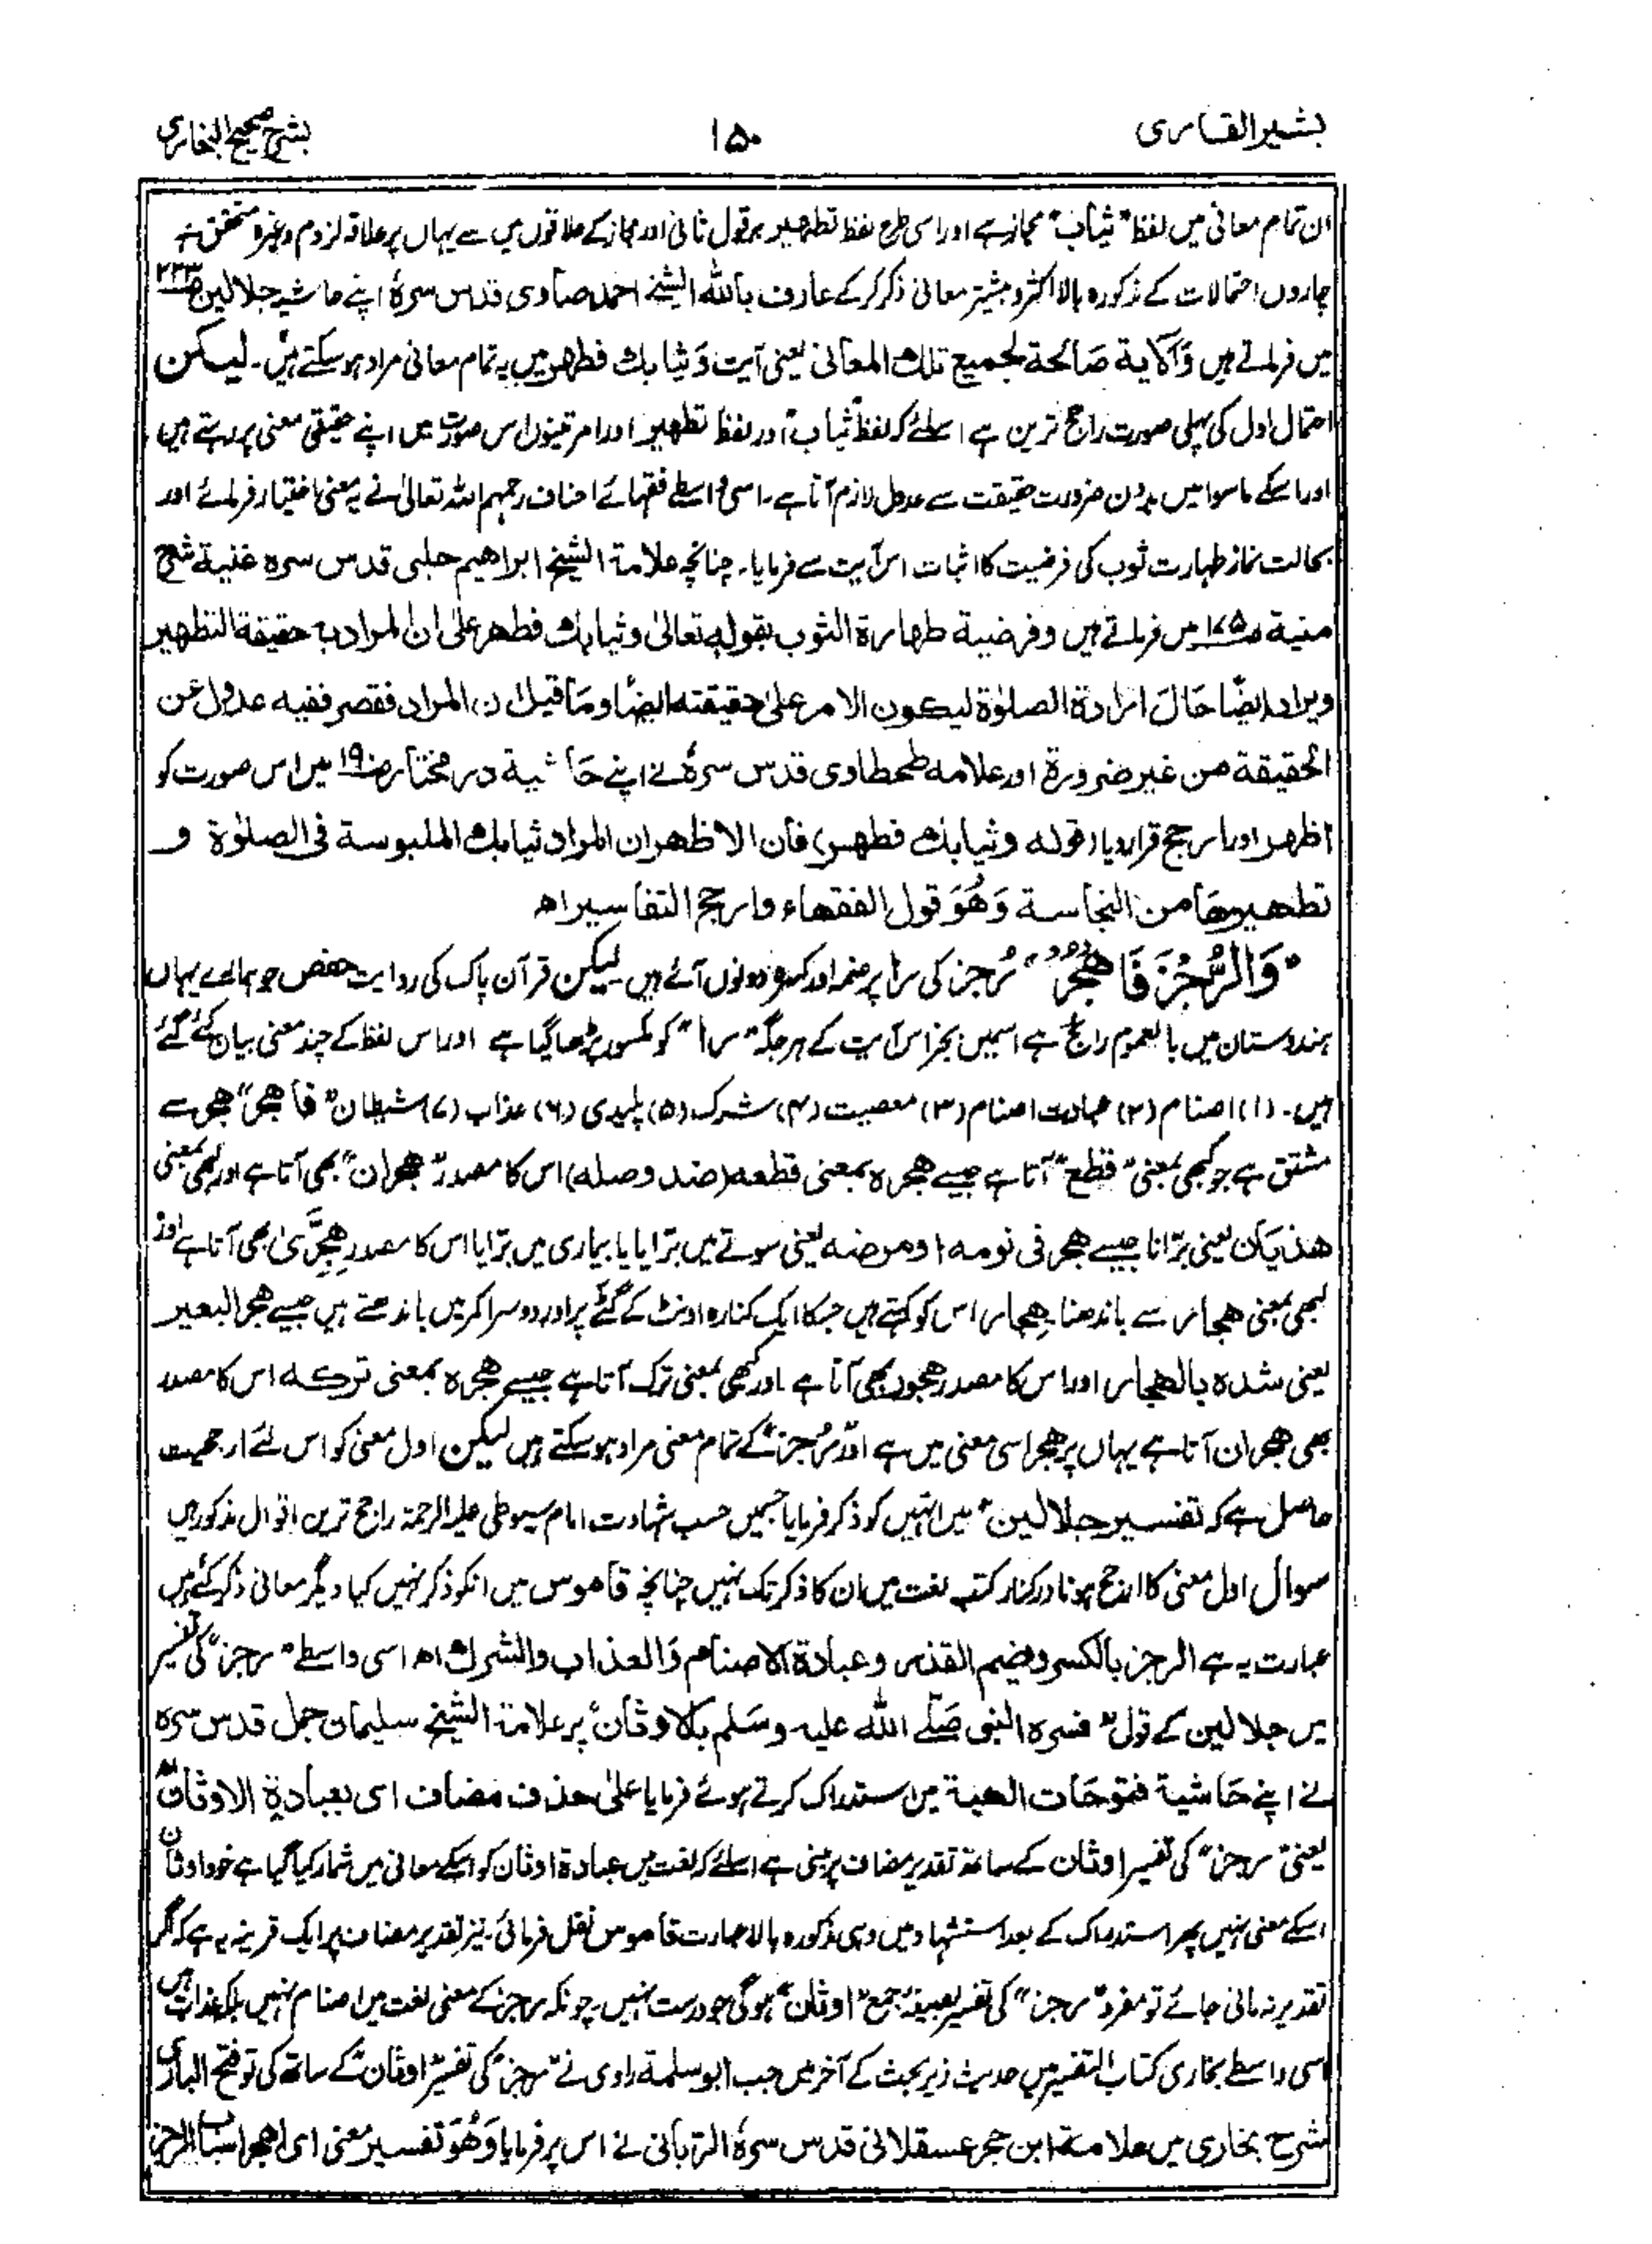 بشیر القاری
۱۵۰
بشرح صحیح البخاری
ان تمام معانی میں لفظ "ثیاب" مجاز ہے اور اسی طرح لفظ تطہیر بر قول ثانی اور مجاز کے علاقوں میں سے یہاں پر علاقہ لزوم وغیرہ متحقق ہے
چاروں احتمالات کے مذکورہ بالا اکثر و بیشتر معانی ذکر کرکے عارف باللہ الشیخ احمد صاوی قدس سرہٗ اپنے حاشیہ جلالین ص۲۲۳
میں فرماتے ہیں وَالآیة صَالحة لجمیع تلك المعانی یعنی آیت وَثیابك فطهر میں یہ تمام معانی مراد ہو سکتے ہیں۔ لیکن
احتمال اول کی پہلی صورت راجح ترین ہے اسلئے کہ لفظ "ثیاب" اور لفظ تطہیر اور امر تینوں اس صورت میں اپنے حقیقی معنی پر رہتے ہیں
اور اسکے ماسوا میں بدون ضرورت حقیقت سے عدول لازم آتا ہے۔ اسی واسطے فقہائے احناف رحمہم اللہ تعالیٰ نے یہ معنی اختیار فرمائے اور
بحالت نماز طہارت ثوب کی فرضیت کا اثبات اس آیت سے فرمایا۔ چنانچہ علامۃ الشیخ ابراهیم حلبی قدس سرہ غنیة شرح
منیة ص۱۷۵ میں فرماتے ہیں وفرضیة طهارة الثوب بقوله تعالیٰ وثیابك فطهر علیٰ ان المراد به حقیقة التطهیر
ویراد ایضًا حَالَ ارادة الصلوٰة لیکون الامر علیٰ حقیقته ایضًا وما قیل ان المراد فقصر ففیه عدول عن
الحقیقة من غیر ضرورة اور علامہ طحطاوی قدس سرہٗ نے اپنے حَاشیة در مختار ص۱۹۰ میں اس صورت کو
اظهر اور ارجح قرار دیا (قوله وثیابك فطهر) فان الاظهر ان المراد ثیابك الملبوسة فی الصلوٰة و
تطهیرها من النجاسة وَهُوَ قول الفقهاء وارجح التفاسیر اه
"وَالرُّجْزَ فَاهْجُرْ" رُجز کی را پر ضمہ اور کسرہ دونوں آئے ہیں لیکن قرآن پاک کی روایت حفص جو ہمارے یہاں
ہندوستان میں بالعموم رائج ہے اسمیں بجز اس آیت کے ہر جگہ "را" کو مکسور پڑھا گیا ہے اور اس لفظ کے چند معنی بیان کئے گئے
ہیں۔ (۱) اصنام (۲) عبادت اصنام (۳) معصیت (۴) شرک (۵) پلیدی (۶) عذاب (۷) شیطان "فاهجر" هجر سے
مشتق ہے جو کبھی بمعنی "قطع" آتا ہے جیسے هجره بمعنی قطعه (ضد وصله) اس کا مصدر "هجران" بھی آتا ہے اور کبھی بمعنی
هذیان یعنی بڑانا جیسے هجر فی نومه او مرضه یعنی سوتے میں بڑایا یا بیماری میں بڑایا اس کا مصدر هِجِّیْریٰ بھی آتا ہے اور
کبھی بمعنی هجار سے باندھنا۔ هِجار اس کو کہتے ہیں جسکا ایک کنارہ اونٹ کے گٹے پر اور دوسرا کمر میں باندھتے ہیں جیسے هجر البعیر
یعنی شده بالهجار اور اس کا مصدر هجور بھی آتا ہے اور کبھی بمعنی ترک آتا ہے جیسے هجره بمعنی ترکه اس کا مصدر
بھی هجران آتا ہے یہاں پر هجر اسی معنی میں ہے اور "رُجز" کے تمام معنی مراد ہو سکتے ہیں لیکن اول معنی کو اس لئے ارجحیت
حاصل ہے کہ تفسیر جلالین" میں انہیں کو ذکر فرمایا جسمیں حسب شہادت امام سیوطی علیہ الرحمۃ راجح ترین اقوال مذکور ہیں
سوال اول معنی کا ارجح ہونا درکنار کتب لغت میں ان کا ذکر تک نہیں چنانچہ قاموس میں انکو ذکر نہیں کیا دیگر معانی ذکر کئے ہیں
عبارت یہ ہے الرجز بالکسر وضم القذر وعبادة الاصنام وَالعذاب والشرك اه اسی واسطے "رجز" کی تفسیر
میں جلالین کے قول "فسره النبی صَلّے اللہ علیہ وسَلم بالاوثان" پر علامۃ الشیخ سلیمان جمل قدس سرہ
نے اپنے حَاشیة فتوحَات الٰهیة میں استدراک کرتے ہوئے فرمایا علیٰ حذف مضاف ای بعبادة الاوثان
یعنی "رجز" کی تفسیر اوثان کے ساتھ تقدیر مضاف پر مبنی ہے اسلئے کہ لغت میں عبادۃ اوثان کو اسکے معانی میں شمار کیا گیا ہے خود اوثان
اسکے معنی نہیں پھر استدراک کے بعد استشہاد میں وہی مذکورہ بالا عبارت قاموس نقل فرمائی۔ نیز تقدیر مضاف پر ایک قرینہ یہ ہے کہ اگر
تقدیر نہ مانی جائے تو مفرد "رجز" کی تفسیر بصیغۂ جمع "اوثان" ہوگی جو درست نہیں۔ چونکہ رجز کے معنی لغت میں اصنام نہیں بلکہ عذاب ہیں
اسی واسطے بخاری کتاب التفسیر میں حدیث زیر بحث کے آخر میں جب ابو سلمة راوی نے "رجز" کی تفسیر "اوثان" کے ساتھ کی تو فتح الباری
شرح بخاری میں علامۃ ابن حجر عسقلانی قدس سرہٗ الربانی نے اس پر فرمایا وَهُوَ تفسیر معنی ای اهجر اسباب الرجز